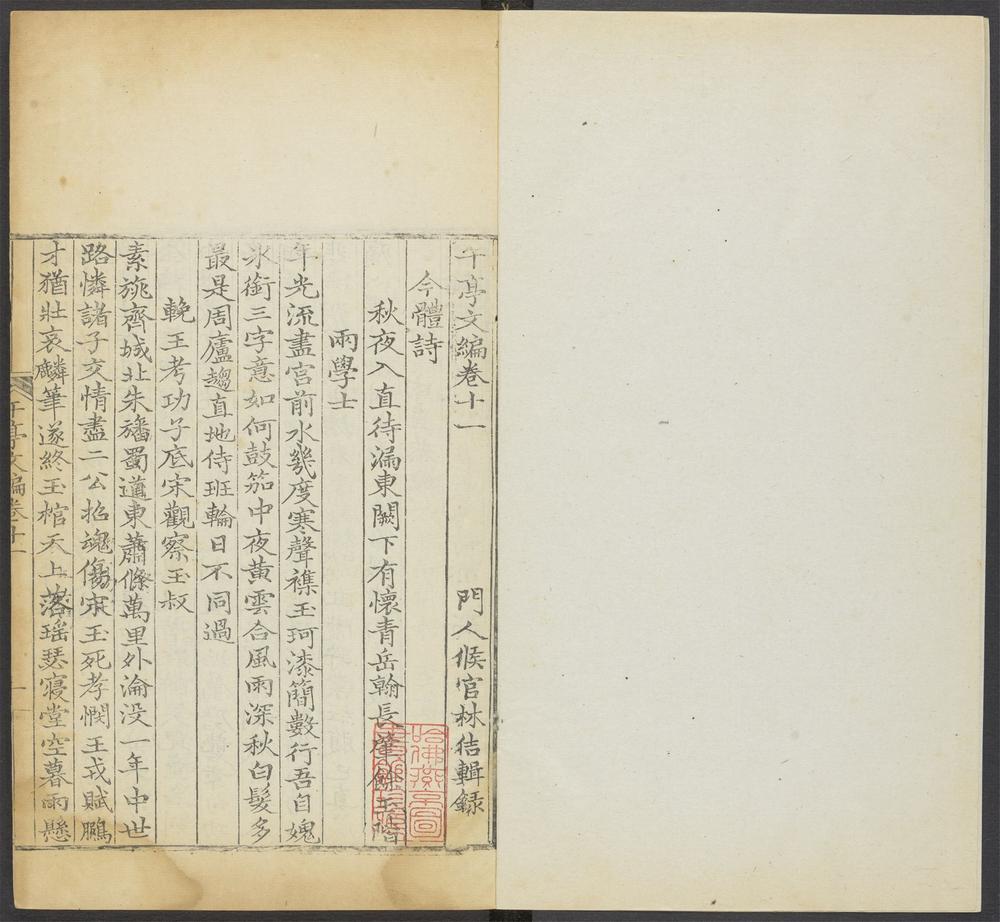 午亭文編卷十一
門人候官林佶輯錄
今體詩
秋夜入直待漏東闕下有懷青岳翰長蓭餘玉階
兩學士
年光流盡宮前水幾度寒聲襍玉珂漆簡數行吾自媿
氷銜三字意如何鼓笳中夜黃雲合風雨深秋白髮多
最是周廬趨直地侍班輪日不同過
輓王考功子底宋觀察玉叔
素旐齊城北朱旛蜀道東蕭條萬里外淪没一年中世
路憐諸子交情盡二公招魂傷宋玉死孝憫王戎賦鵬
才猶壯哀麟筆遂終玉棺天上落瑶瑟寢堂空暮雨懸
午亭文編卷十一
一
哈佛燕京